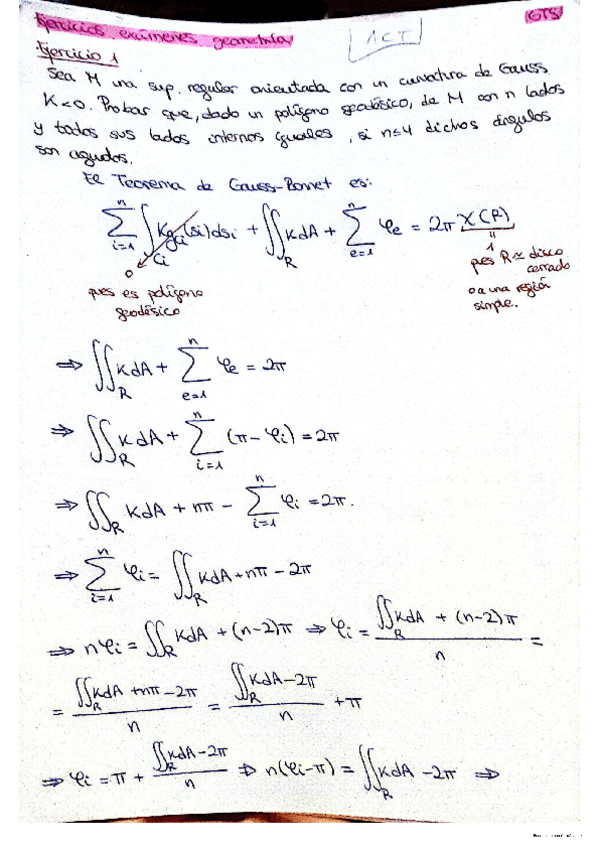 Ejercicios exámenes geometría
GTS
ACT
Ejercicio 1
Sea M una sup. regular orientada con un curvatura de Gauss
K<0. Probar que, dado un polígono geodésico, de M con n lados
y todos sus lados internos iguales, si n≤4 dichos ángulos
son agudos.
El Teorema de Gauss-Bonnet es:
∑_{i=1}^{n} ∫_{Ci} Kg_{ci}(si)dsi + ∬_R KdA + ∑_{e=1}^{n} φe = 2π χ(R)
0
pues es polígono
geodésico
1
pues R ≃ disco
cerrado
o a una región
simple.
⇒ ∬_R KdA + ∑_{e=1}^{n} φe = 2π
⇒ ∬_R KdA + ∑_{i=1}^{n} (π-φi) = 2π
⇒ ∬_R KdA + nπ - ∑_{i=1}^{n} φi = 2π.
⇒ ∑_{i=1}^{n} φi = ∬_R KdA + nπ - 2π
⇒ nφi = ∬_R KdA + (n-2)π ⇒ φi = (∬_R KdA + (n-2)π)/n =
= (∬_R KdA + nπ - 2π)/n = (∬_R KdA - 2π)/n + π
⇒ φi = π + (∬_R KdA - 2π)/n ⇒ n(φi-π) = ∬_R KdA - 2π ⇒